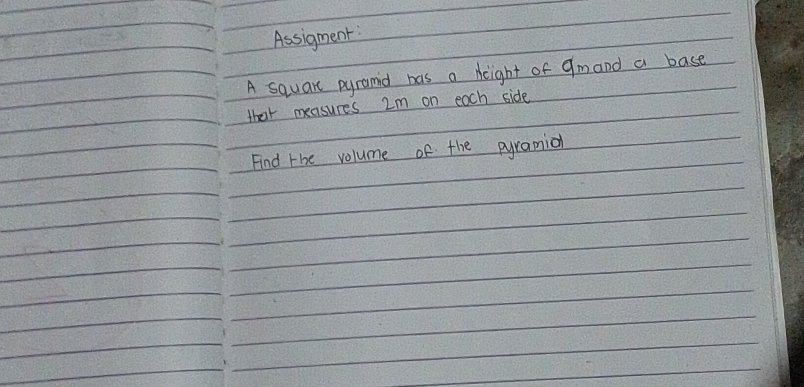 Assigment:
A square pyramid has a height of 9m and a base
that measures 2m on each side
Find the volume of the pyramid